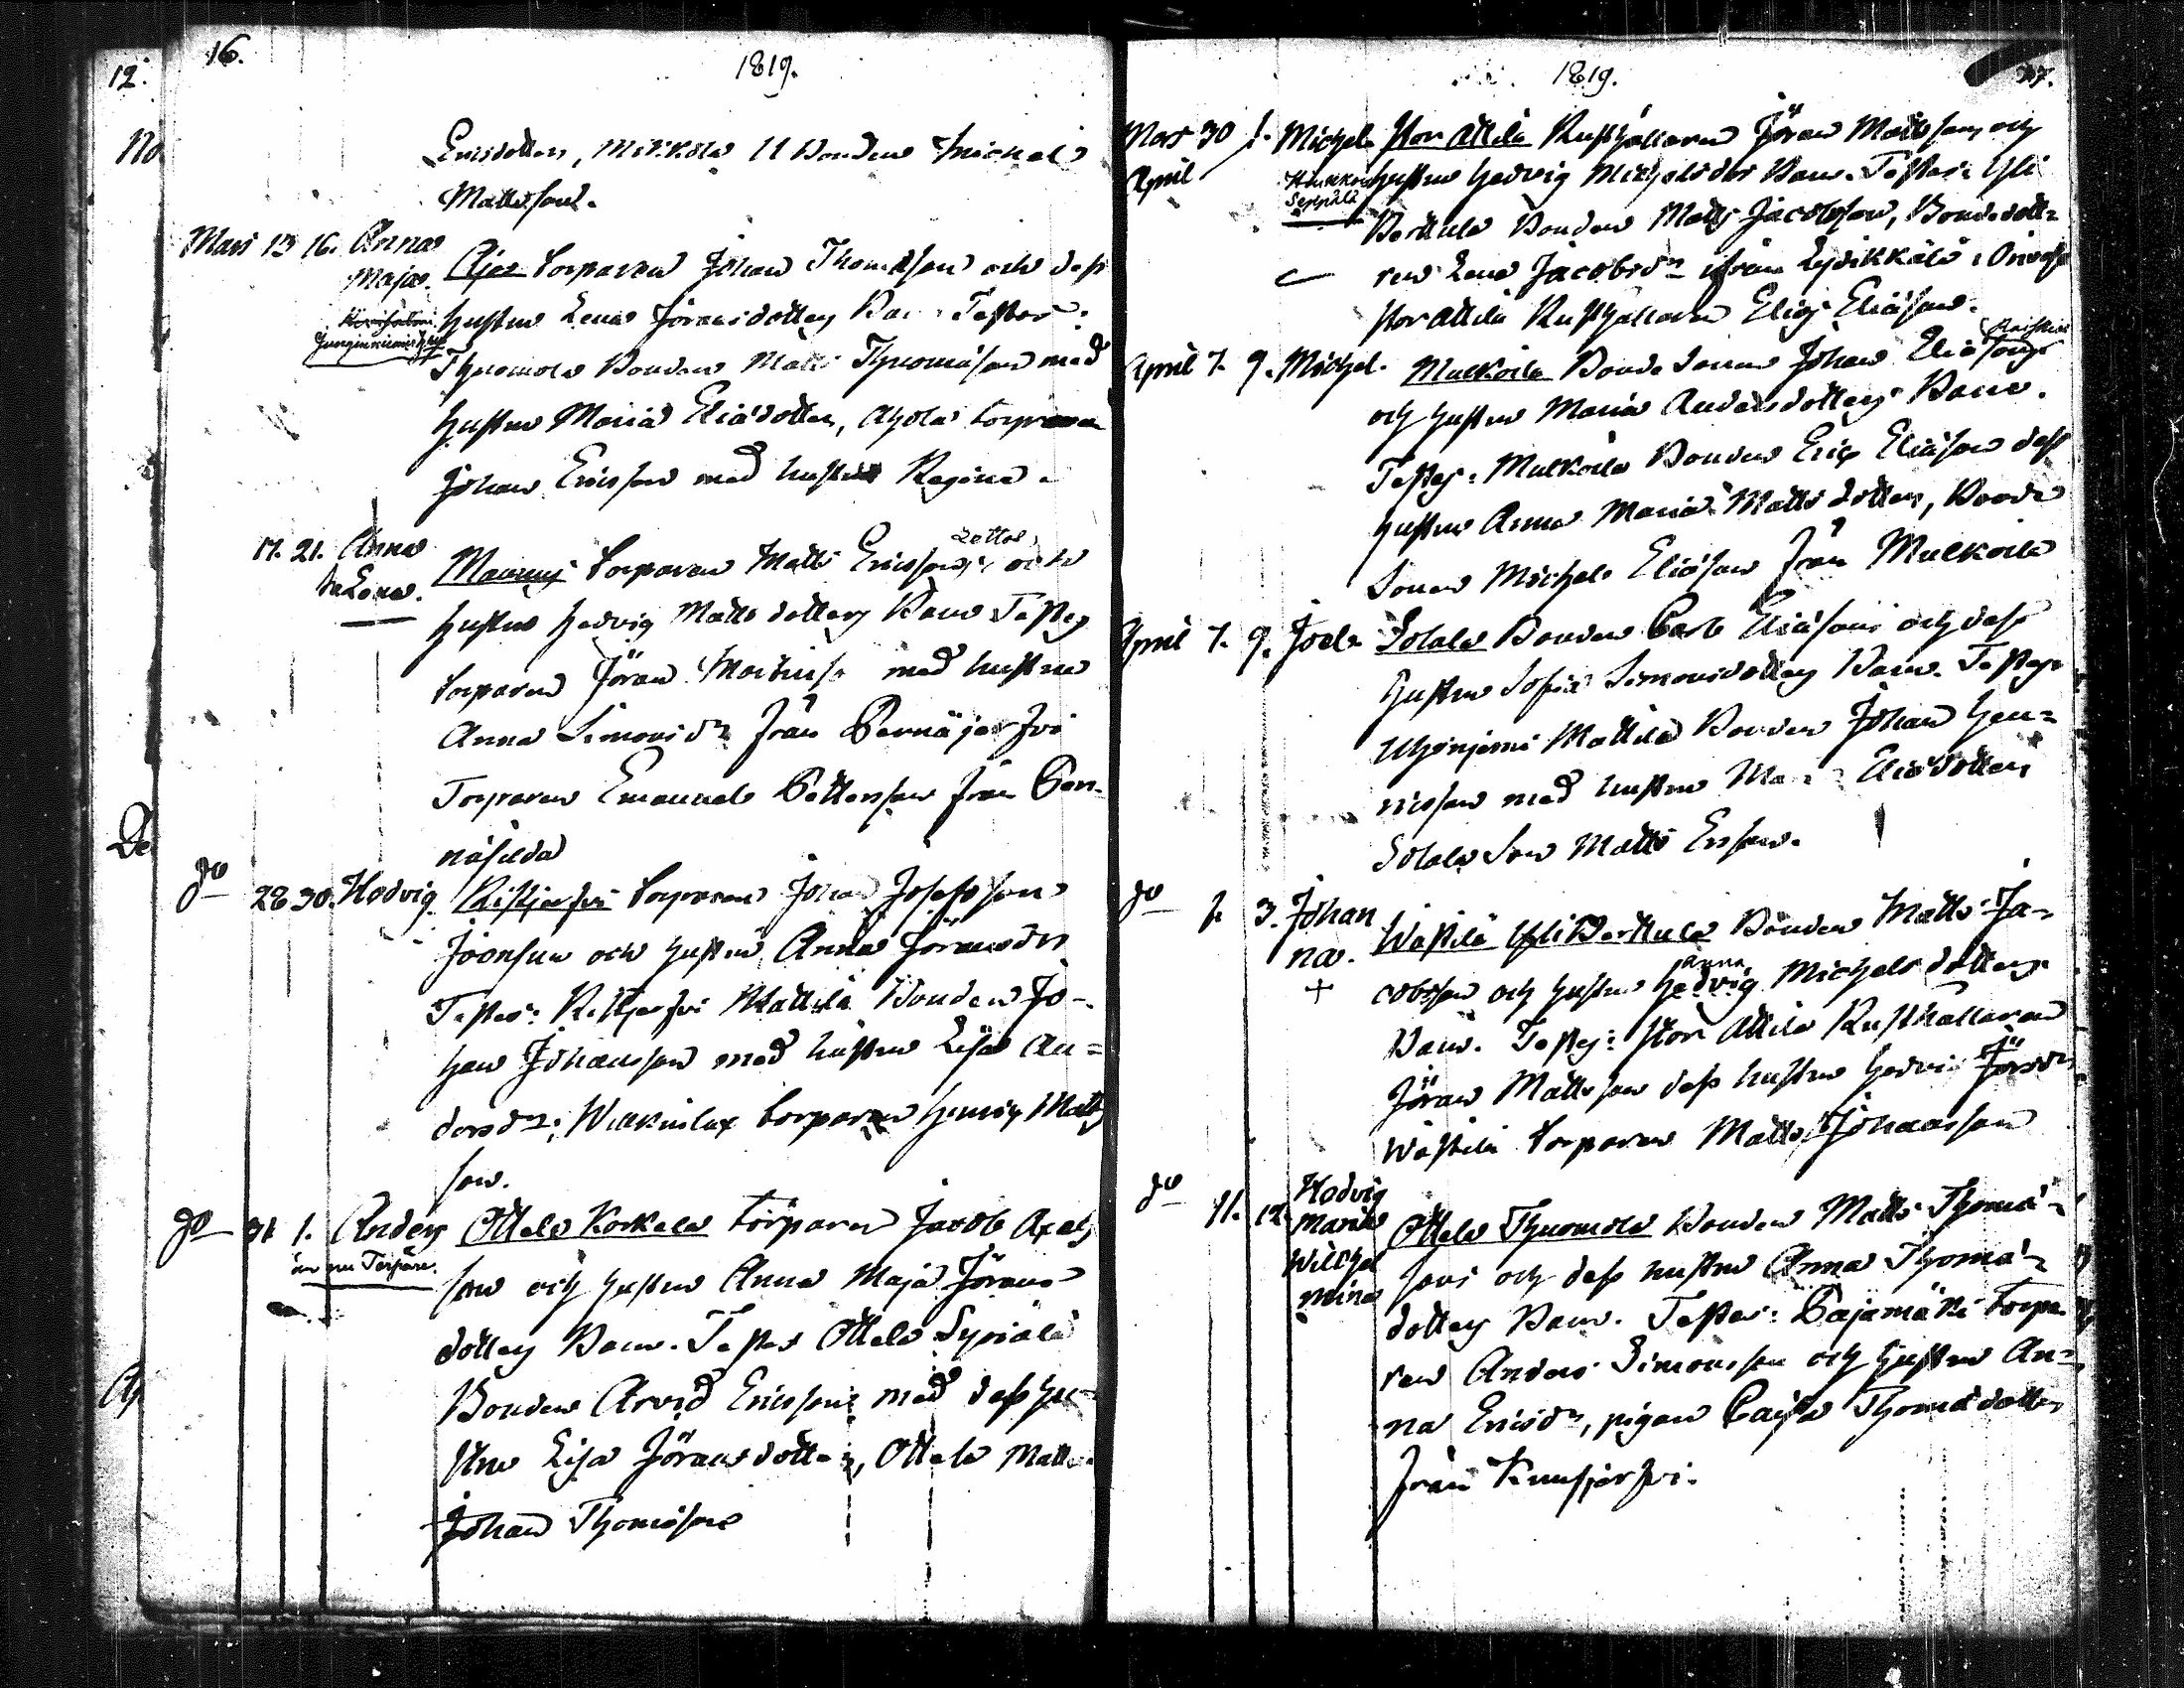 12.
No
De
16.
1819.
Ericsdotter, Mikkola Bonden Michel
Mattsson.
Mars 13 16. Anna Maja.
Ajos torparen Johan Thomasson och dess
hustru Lena Jöransdotter Barn Testes:
Thuomola Bonden Matts Thuomasson med
hustru Maria Eliædotter, Ahola torparen
Johan Ericsson med hustru Regina.
17. 21. Anna Lena.
Torparen Matts Ericsson och
hustru Hedvig Mattsdotter Barn Testes
torparen Jöran med hustru
Anna Simonsdr från Pernäjerfvi
Torparen Emanuel Pettersson från Per-
näsilda
do 28 30. Hedvig.
Ristjerfvi torparen Johan Josefsson
och hustru Anna Jöransdr
Testes: Ristjerfvi Mattila Bonden Jo-
han Johansson med hustru Lisa An=
dersdr; torparen Henrix Matts
son.
do 31 1. Anders
är nu Torpare.
Ottela Korkela torparen Jacob Axels
son och hustru Anna Maja Jörans
dotters Barn. Testes Ottela
Bonden Arvid Ericsson med dess hu-
stru Lisa Jöransdotter, Ottela Matts
Johan Thomasson
1819.
17.
Mars 30 1. Michel.
April
Seppälä
Stor Attila Rusthållaren Jöran Mattsson och
hustru Hedvig Michelsdrs Barn. Testes: Yli
Berttula Bonden Matts Jacobsson, Bondedott=
ren Lena Jacobsdr ifrån
Stor Attila Rusthållaren Elias Eliæson.
April 7. 9. Michel.
Mulkoila Bonde Sonen Johan Eliæsons
och hustru Maria Andersdotters Barn.
Testes: Mulkoila Bonden Eric Eliæson dess
hustru Anna Maria Mattsdotter, Bonde
Sonen Michel Eliæson från Mulkoila
April 7. 9. Joel.
Sotala Bonden Carl Eliæsons och dess
hustru Sofia Simonsdotters Barn. Testes
Mattila Bonden Johan Hen=
ricsson med hustru Eliædotter,
Sotala Son Matts Ersson.
do 1. 3. Johan
na.
+
Wästilä Yli Berttula Bonden Matts Ja-
cobsson och hustru Hedvig Michelsdotters
Anna
Barn. Testes: Stor Attila Rusthållaren
Jöran Mattsson dess hustru Hedvig Jörsdr
Wästilä torparen Matts Johansson
do 11. 12 Hedvig
Maria
Wilhel
mina
Ottela Thuomola Bonden Matts Thomæ-
sons och dess hustru Anna Thomæ-
dotters Barn. Testes: Pajamäki torpa
ren Anders Simonsson och hustru An=
na Ericsdr, pigan Caisa Thomædotter
från Kunsjerfvi.